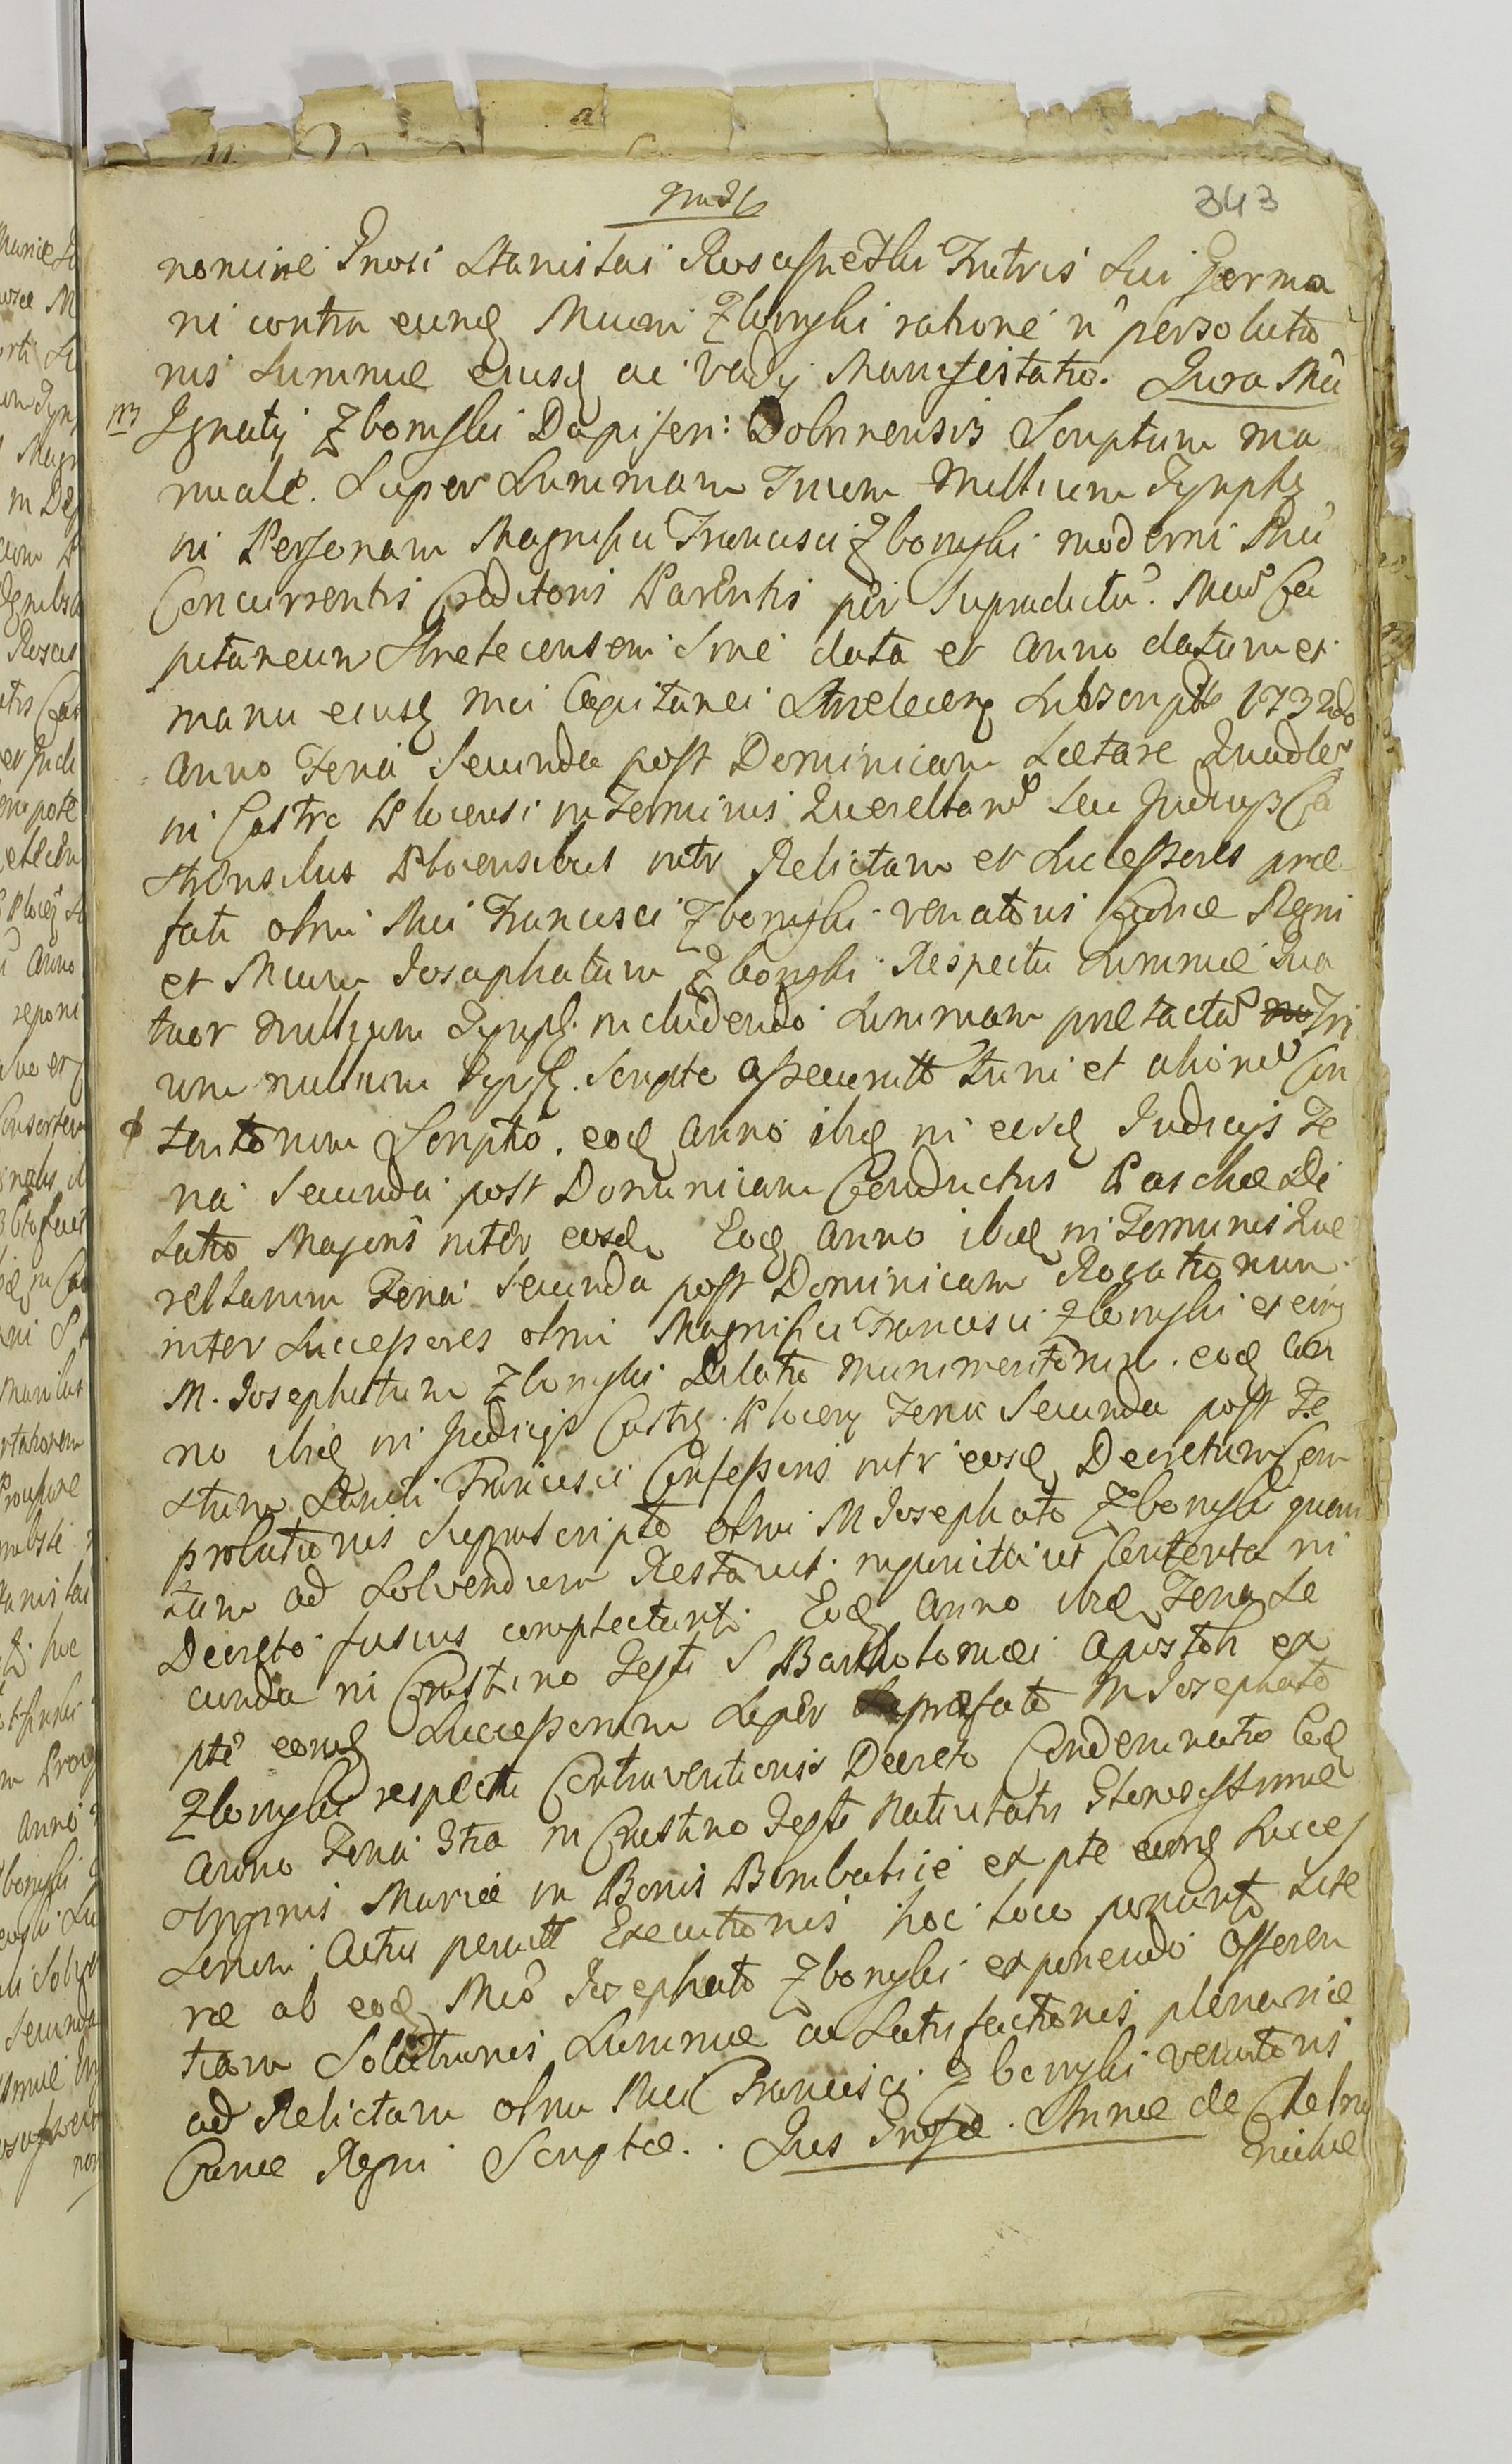 343
nomine Gnosi Stanislai Rosciszewski Fratris Sui Germa
ni contra eund Mucm Zbonski ratione n persoluto
nis Summæ eiusq ac Vadÿ Manifestatio. Jura Mci
Ignatÿ Zbonski Dapiferi: Dobrinensis Scriptum ma
nuale. Super Summam Trium Millium Tymph
in Personam Magnifici Francisci Zbonski moderni Mci
Concurrentis Creditoris Parentis per Supradictu. Mcu Ca
pitaneum Streletcensem Sine data et Anno datum et
manu eiusq Mci Capitanei Strelecens Subscriptu 1732do
Anno Feria Secunda post Dominicam Lætare Quadle
in Castro Plocensi in Terminis Querellaru Seu Judicÿs Ca
strensibus Plocensibus intr Relictam et Successores præ
fati olim Mci Francisci Zbonski venatoris Curiæ Regni
et Mcum Josaphatum Zbonski Respectu Summæ Qua
tuor millium Tymph. includendo Summam prætacta Tri
um millium Tymph. Scripto assecurat Suni et alione Con
tentorum Scripto. eod Anno ibid in eisd Judicÿs Fe
ria Secunda post Dominicam Conductus Paschæ Di
latio Majoris inter eosd. Eod Anno ibid in Terminis Que
rellarum Feria Secunda post Dominicam Rogationum
inter Successores olim Magnifici Francisci Zbonski et eund
M. Josephatum Zbonski Dilatio munimentorum. eod An
no ibid in Judicÿs Castr. Plocens Feria Secunda post Fe
stum Sancti Francisci Confessoris intr eosd Decretum Com
probationis suprascripto olim M Josephato Zbonski quan
tum ad Solvendum Restaret injuncti ut Contenta in
Decreto fusius complectunt. Eod Anno ibid Feria Se
cunda in Crastino Festi S Bartholomæi Apostoli ex
pte eorund Successorum super præfato M Josephato
Zbonski respectu Contraventionis Decreto Condemnatio Eod
Anno Feria 3tia in Crastino Festi Nativitatis Gloriosissimæ
Virginis Mariæ in Bonis Bombalice ex pte eorund Succes
sorum Actus permitt Executionis hoc loco ponunt Lite
ræ ab eod Mco Josephato Zbonski exponendo offeren
tiam Solutionis Summæ ac Satisfactionis plenariæ
ad Relictam olim Mci Francisci Zbonski venatoris
Curiæ Regni Scriptæ. Jus Gnosæ Annæ de